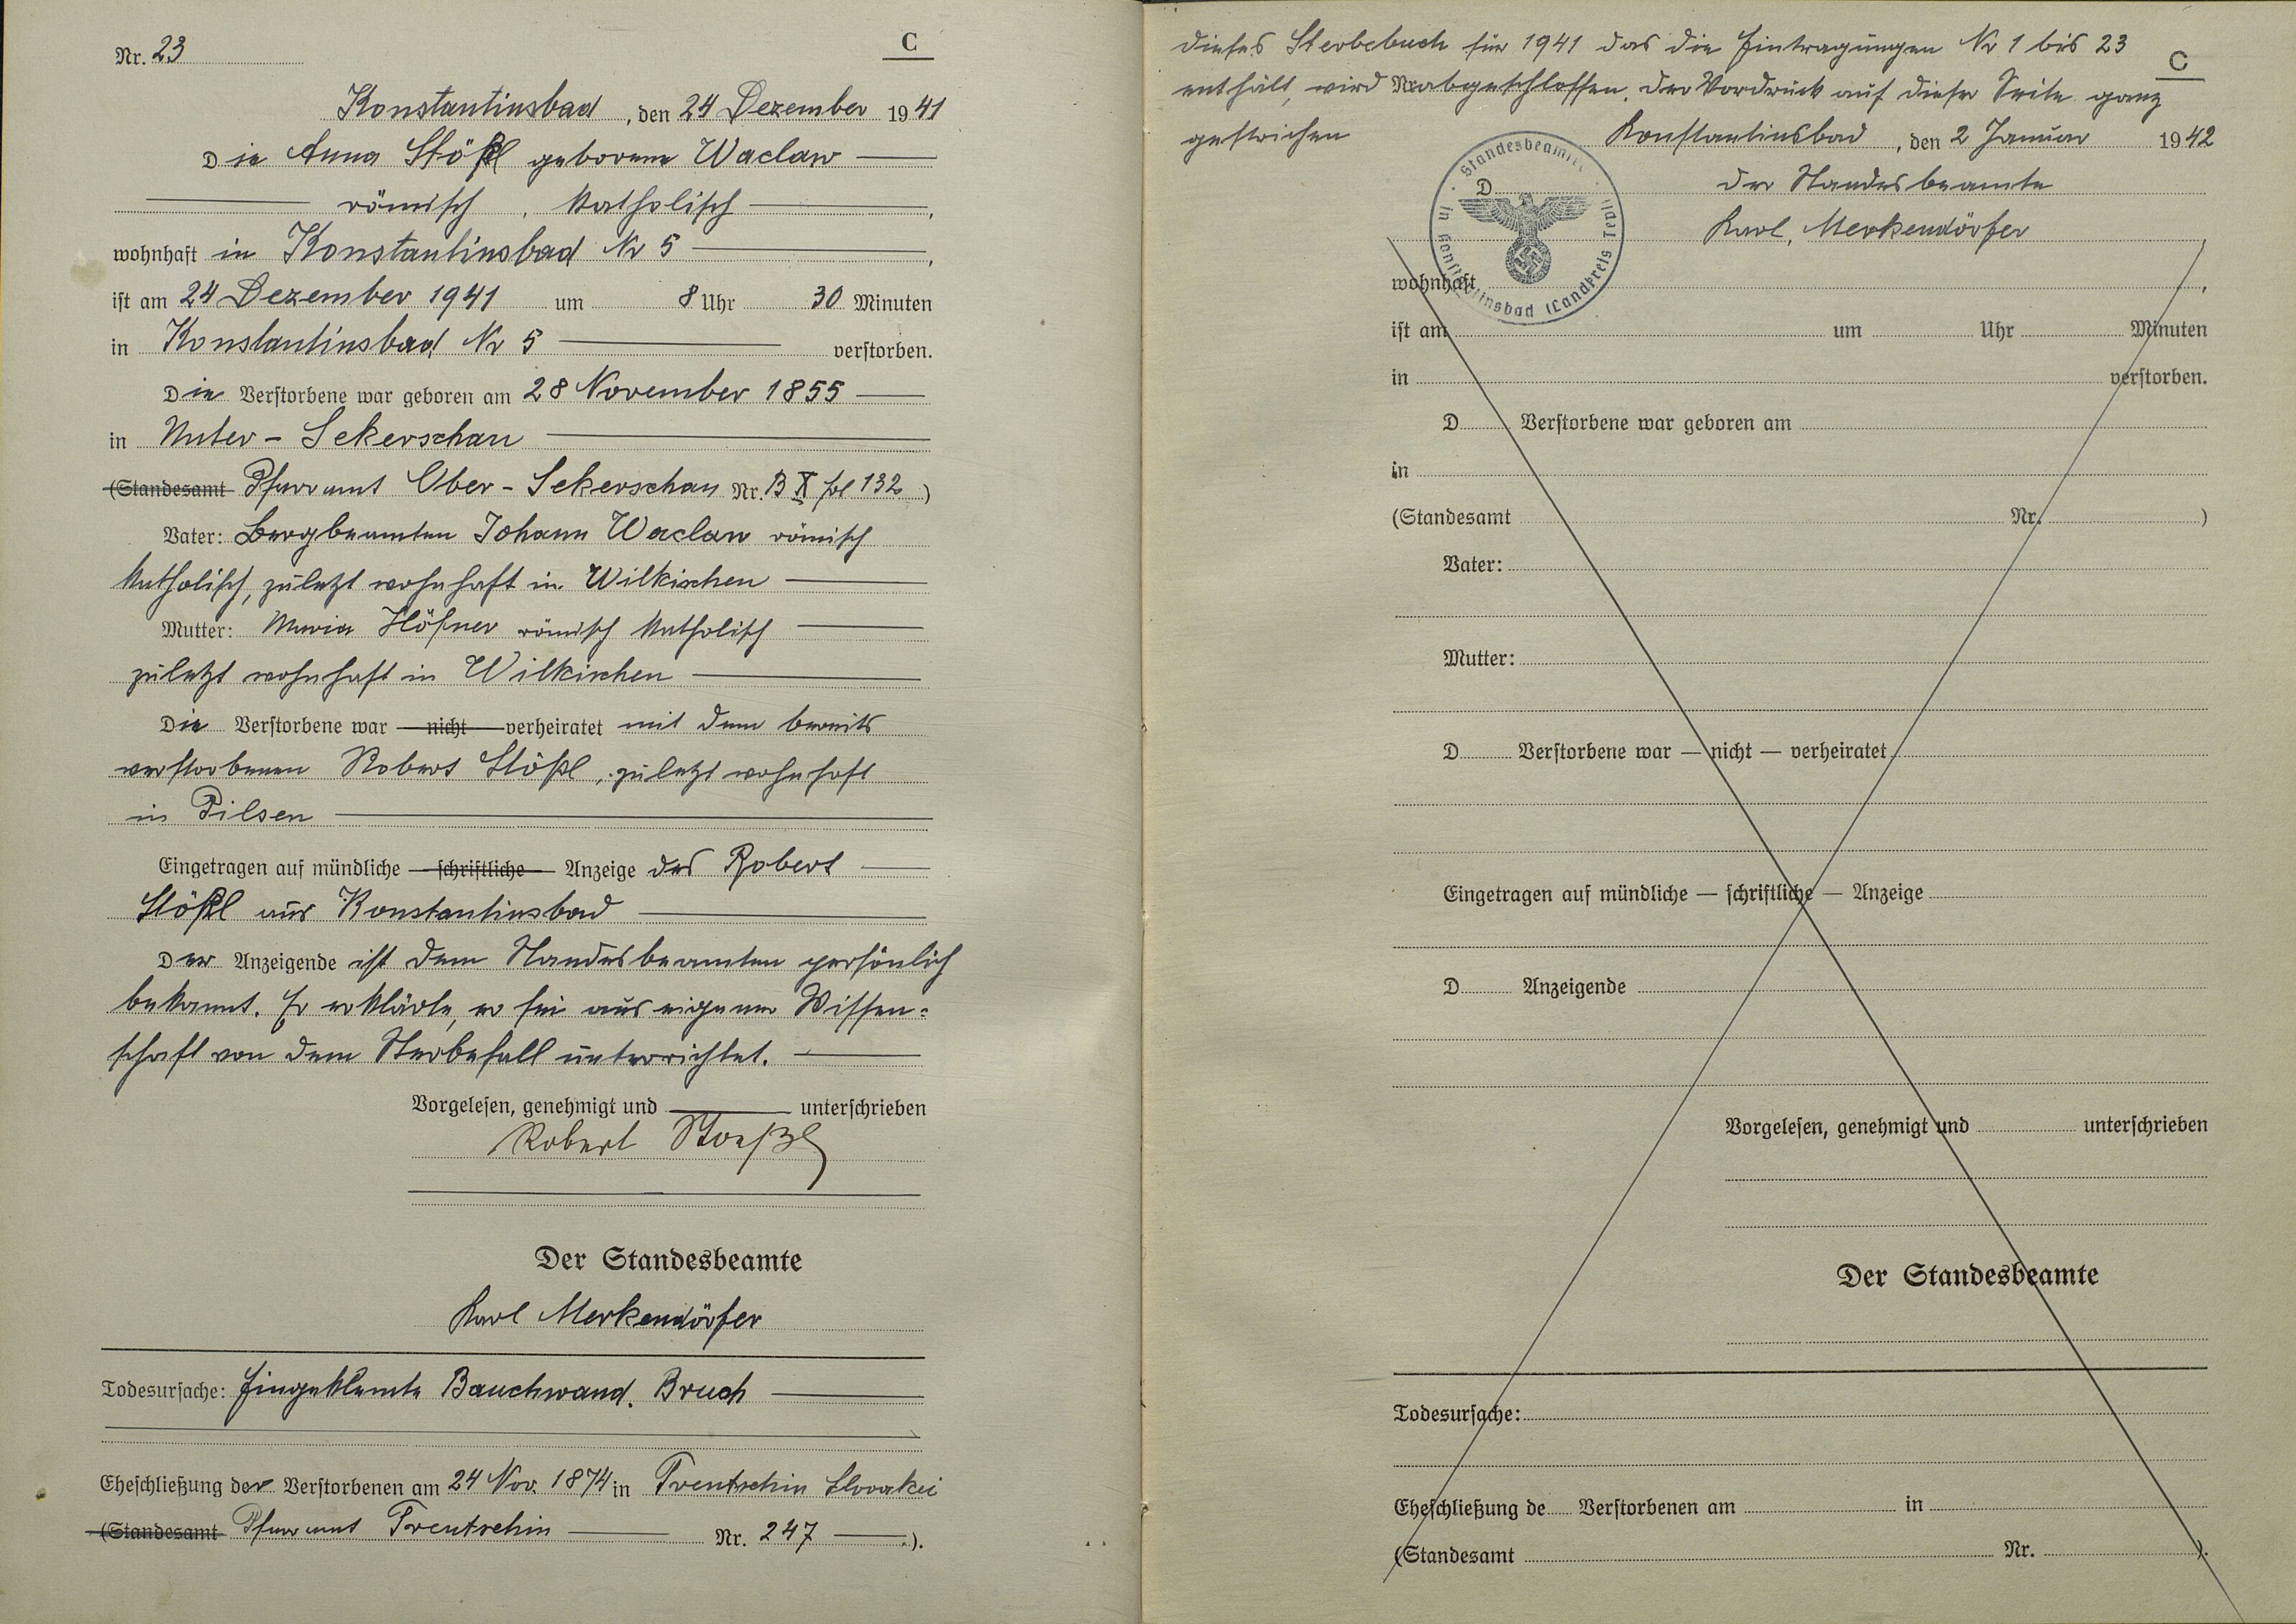 Nr. 23
C
Konstantinsbad, den 24 Dezember 1941
Die Anna Stößl geborene Waclaw
römisch katholisch,
wohnhaft in Konstantinsbad Nr 5,
ist am 24 Dezember 1941 um 8 Uhr 30 Minuten
in Konstantinsbad Nr 5 verstorben.
Die Verstorbene war geboren am 28 November 1855
in Unter-Sekerschan
(Standesamt Pfarramt Ober-Sekerschan Nr. B X fol 132)
Vater: Bergbeamten Johann Waclaw römisch
katholisch, zuletzt wohnhaft in Wilkischen
Mutter: Maria Höfner römisch katholisch
zuletzt wohnhaft in Wilkischen
Die Verstorbene war — nicht — verheiratet mit dem bereits
verstorbenen Robert Stößl, zuletzt wohnhaft
in Pilsen
Eingetragen auf mündliche — schriftliche — Anzeige des Robert
Stößl aus Konstantinsbad
Der Anzeigende ist dem Standesbeamten persönlich
bekannt. Er erklärte, er sei aus eigener Wissen=
schaft von dem Sterbefall unterrichtet.
Vorgelesen, genehmigt und unterschrieben
Robert Stoeßl
Der Standesbeamte
Karl Merkendörfer
Todesursache: Eingeklemte Bauchwand. Bruch
Eheschließung der Verstorbenen am 24 Nov. 1874 in Trentschin Slovakei
(Standesamt Pfarramt Trentschin Nr. 247).
dieses Sterbebuch für 1941 das die Eintragungen Nr 1 bis 23
C
enthält, wird abgeschlossen. Der Vordruck auf dieser Seite ganz
gestrichen
Konstantinsbad, den 2 Januar 1942
D
der Standesbeamte
Karl, Merkendörfer
Standesbeamte in Konstantinsbad (Landkreis Tepl)
wohnhaft,
ist am um Uhr Minuten
in verstorben.
D Verstorbene war geboren am
in
(Standesamt Nr. )
Vater:
Mutter:
D Verstorbene war — nicht — verheiratet
Eingetragen auf mündliche — schriftliche — Anzeige
D Anzeigende
Vorgelesen, genehmigt und unterschrieben
Der Standesbeamte
Todesursache:
Eheschließung de Verstorbenen am in
(Standesamt Nr. ).